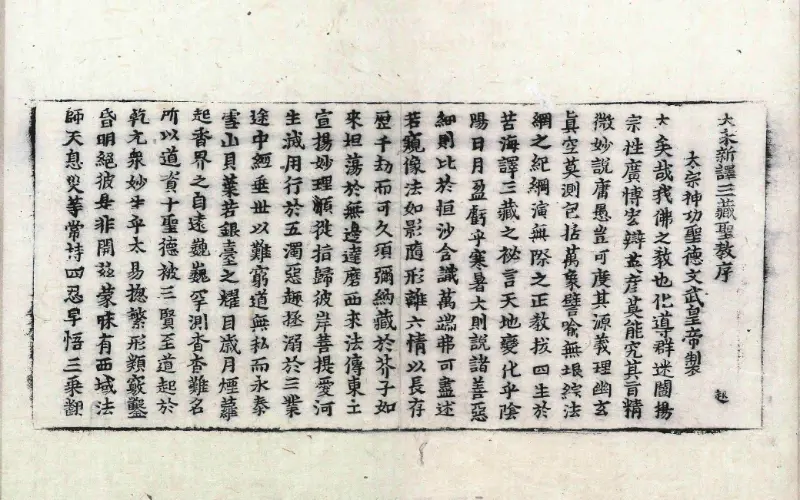 大宋新譯三藏聖教序
太宗神功聖德文武皇帝製
大矣哉我佛之教也化導群迷闡揚
宗性廣博宏辯英能究其旨精
微妙說庸愚豈可度其源義理幽玄
真空莫測包括萬象譬喻無垠綜法
網之紀綱演無際之正教拔四生於
苦海譯三藏之祕言天地變化乎陰
陽日月盈虧乎寒暑大則說諸善惡
細則比於恒沙含識萬端弗可盡述
若窺像法如影隨形離六情以長存
歷千劫而可久須彌納藏於芥子如
來坦蕩於無邊達磨西來法傳東土
宣揚妙理順從指歸彼岸菩提愛河
生滅用行於五濁惡趣拯溺於三業
途中經垂世以難窮道無私而永泰
雪山貝葉若銀臺之耀目歲月煙蘿
起香界之自遠巍巍罕測杳杳難名
所以道資十聖德被三賢至道起於
乾元衆妙生乎太易揔繁形類竅鑿
昏明絕彼是非開茲蒙昧有西域法
師天息災等常持四忍早悟三乘翻